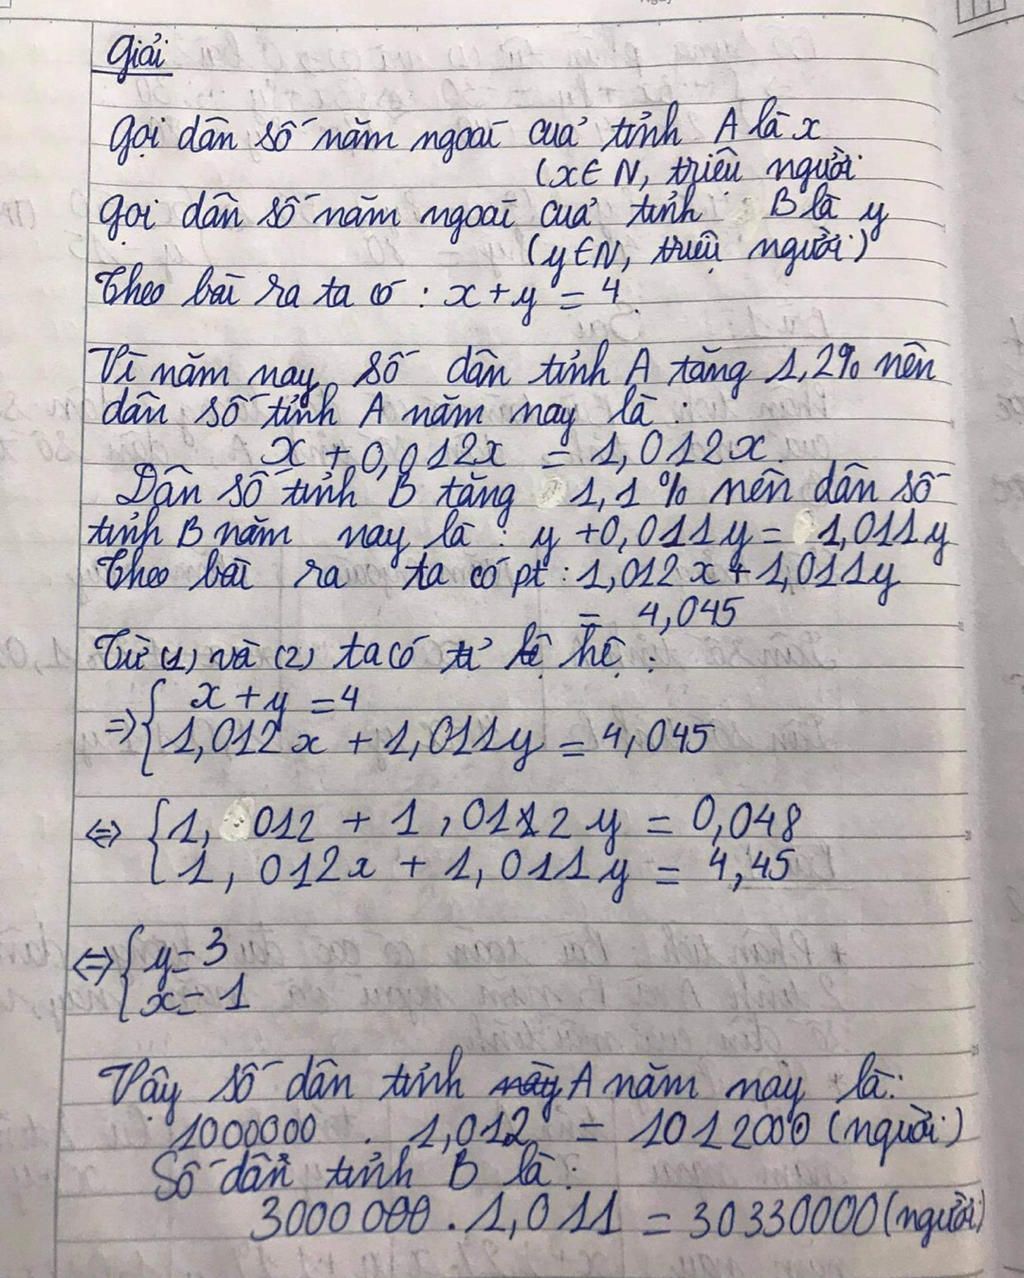 Giải
Gọi dân số năm ngoái của tỉnh A là x
(x∈N, triệu người
Gọi dân số năm ngoái của tỉnh B là y
(y∈N, triệu người)
Theo bài ra ta có : x + y = 4
Vì năm nay số dân tỉnh A tăng 1,2% nên
dân số tỉnh A năm nay là :
x + 0,012x = 1,012x.
Dân số tỉnh B tăng 1,1% nên dân số
tỉnh B năm nay là : y + 0,011y = 1,011y
Theo bài ra ta có pt : 1,012x + 1,011y
= 4,045
Từ (1) và (2) ta có hệ :
⇒ { x + y = 4
1,012x + 1,011y = 4,045
⇔ { 1,012 + 1,012y = 0,048
1,012x + 1,011y = 4,45
⇔ { y = 3
x = 1
Vậy số dân tỉnh A năm nay là:
1000000 . 1,012 = 1012000 (người)
Số dân tỉnh B là :
3000000 . 1,011 = 30330000 (người)